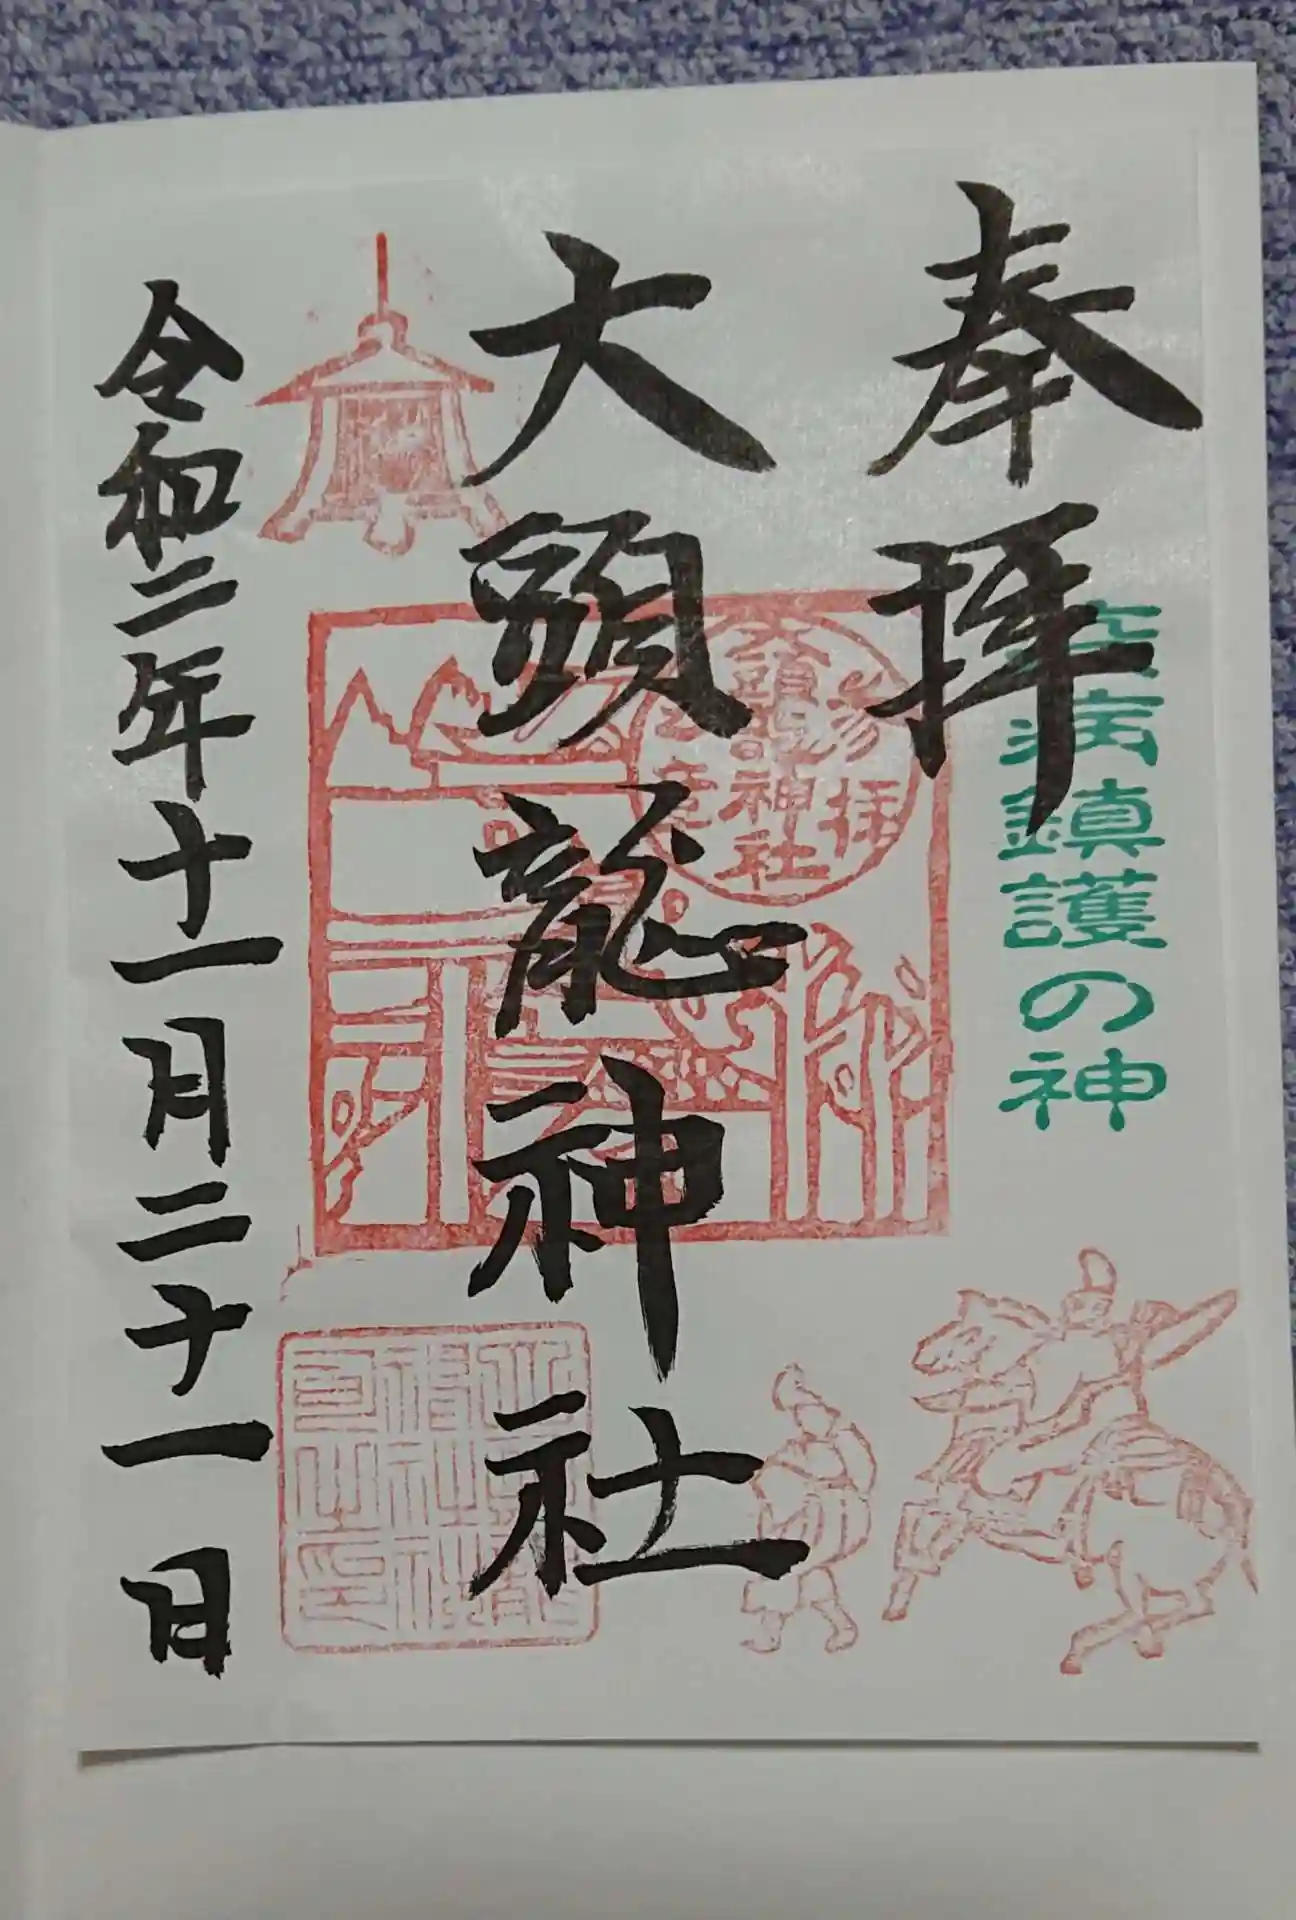 奉拝
疫病鎮護の神
大頭龍神社
参拝
大頭龍神社
之章
令和二年十一月二十一日